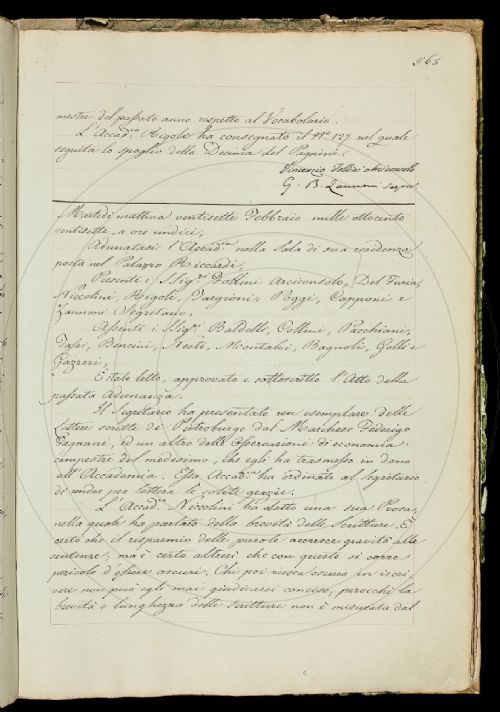 565
mestre del passato anno rispetto al Vocabolario.
L'Accad.co Rigoli ha consegnato il N.o 127. nel quale
seguita lo spoglio della Decima del Pagnini.
Vincenzio Follini Arciconsolo
G. B. Zannoni Segret.
Martedì mattina ventisette Febbraio mille ottocento
ventisette, a ore undici,
Adunatasi l'Accad.ia nella Sala di sua residenza
posta nel Palazzo Riccardi,
Presenti i SSig.ri Follini Arciconsolo, Del Furia,
Niccolini, Rigoli, Targioni, Poggi, Capponi e
Zannoni Segretario,
Assenti i SSig.ri Baldelli, Collini, Pacchiani,
Tassi, Bencini, Nesti, Montalvi, Bagnoli, Gelli e
Gazzeri,
È stato letto, approvato e sottoscritto l'Atto della
passata Adunanza.
Il Segretario ha presentato un esemplare delle
Lettere scritte di Pietroburgo dal Marchese Federigo
Fagnani, ed un altro delle Osservazioni di economia
campestre del medesimo, che egli ha trasmesso in dono
all'Accademia. Essa Accad.ia ha ordinato al Segretario
di render per lettera le solite grazie.
L'Accad.co Niccolini ha detto una sua Prosa,
nella quale ha parlato della brevità delle Scritture. È
certo che il risparmio delle parole accresce gravità alle
sentenze; ma è certo altresì che con questo si corre
pericolo d'essere oscuri. Chi poi riesca oscuro in iscri-
vere non può egli mai giudicarsi conciso; perocchè la
brevità o lunghezza delle scritture non è misurata dal